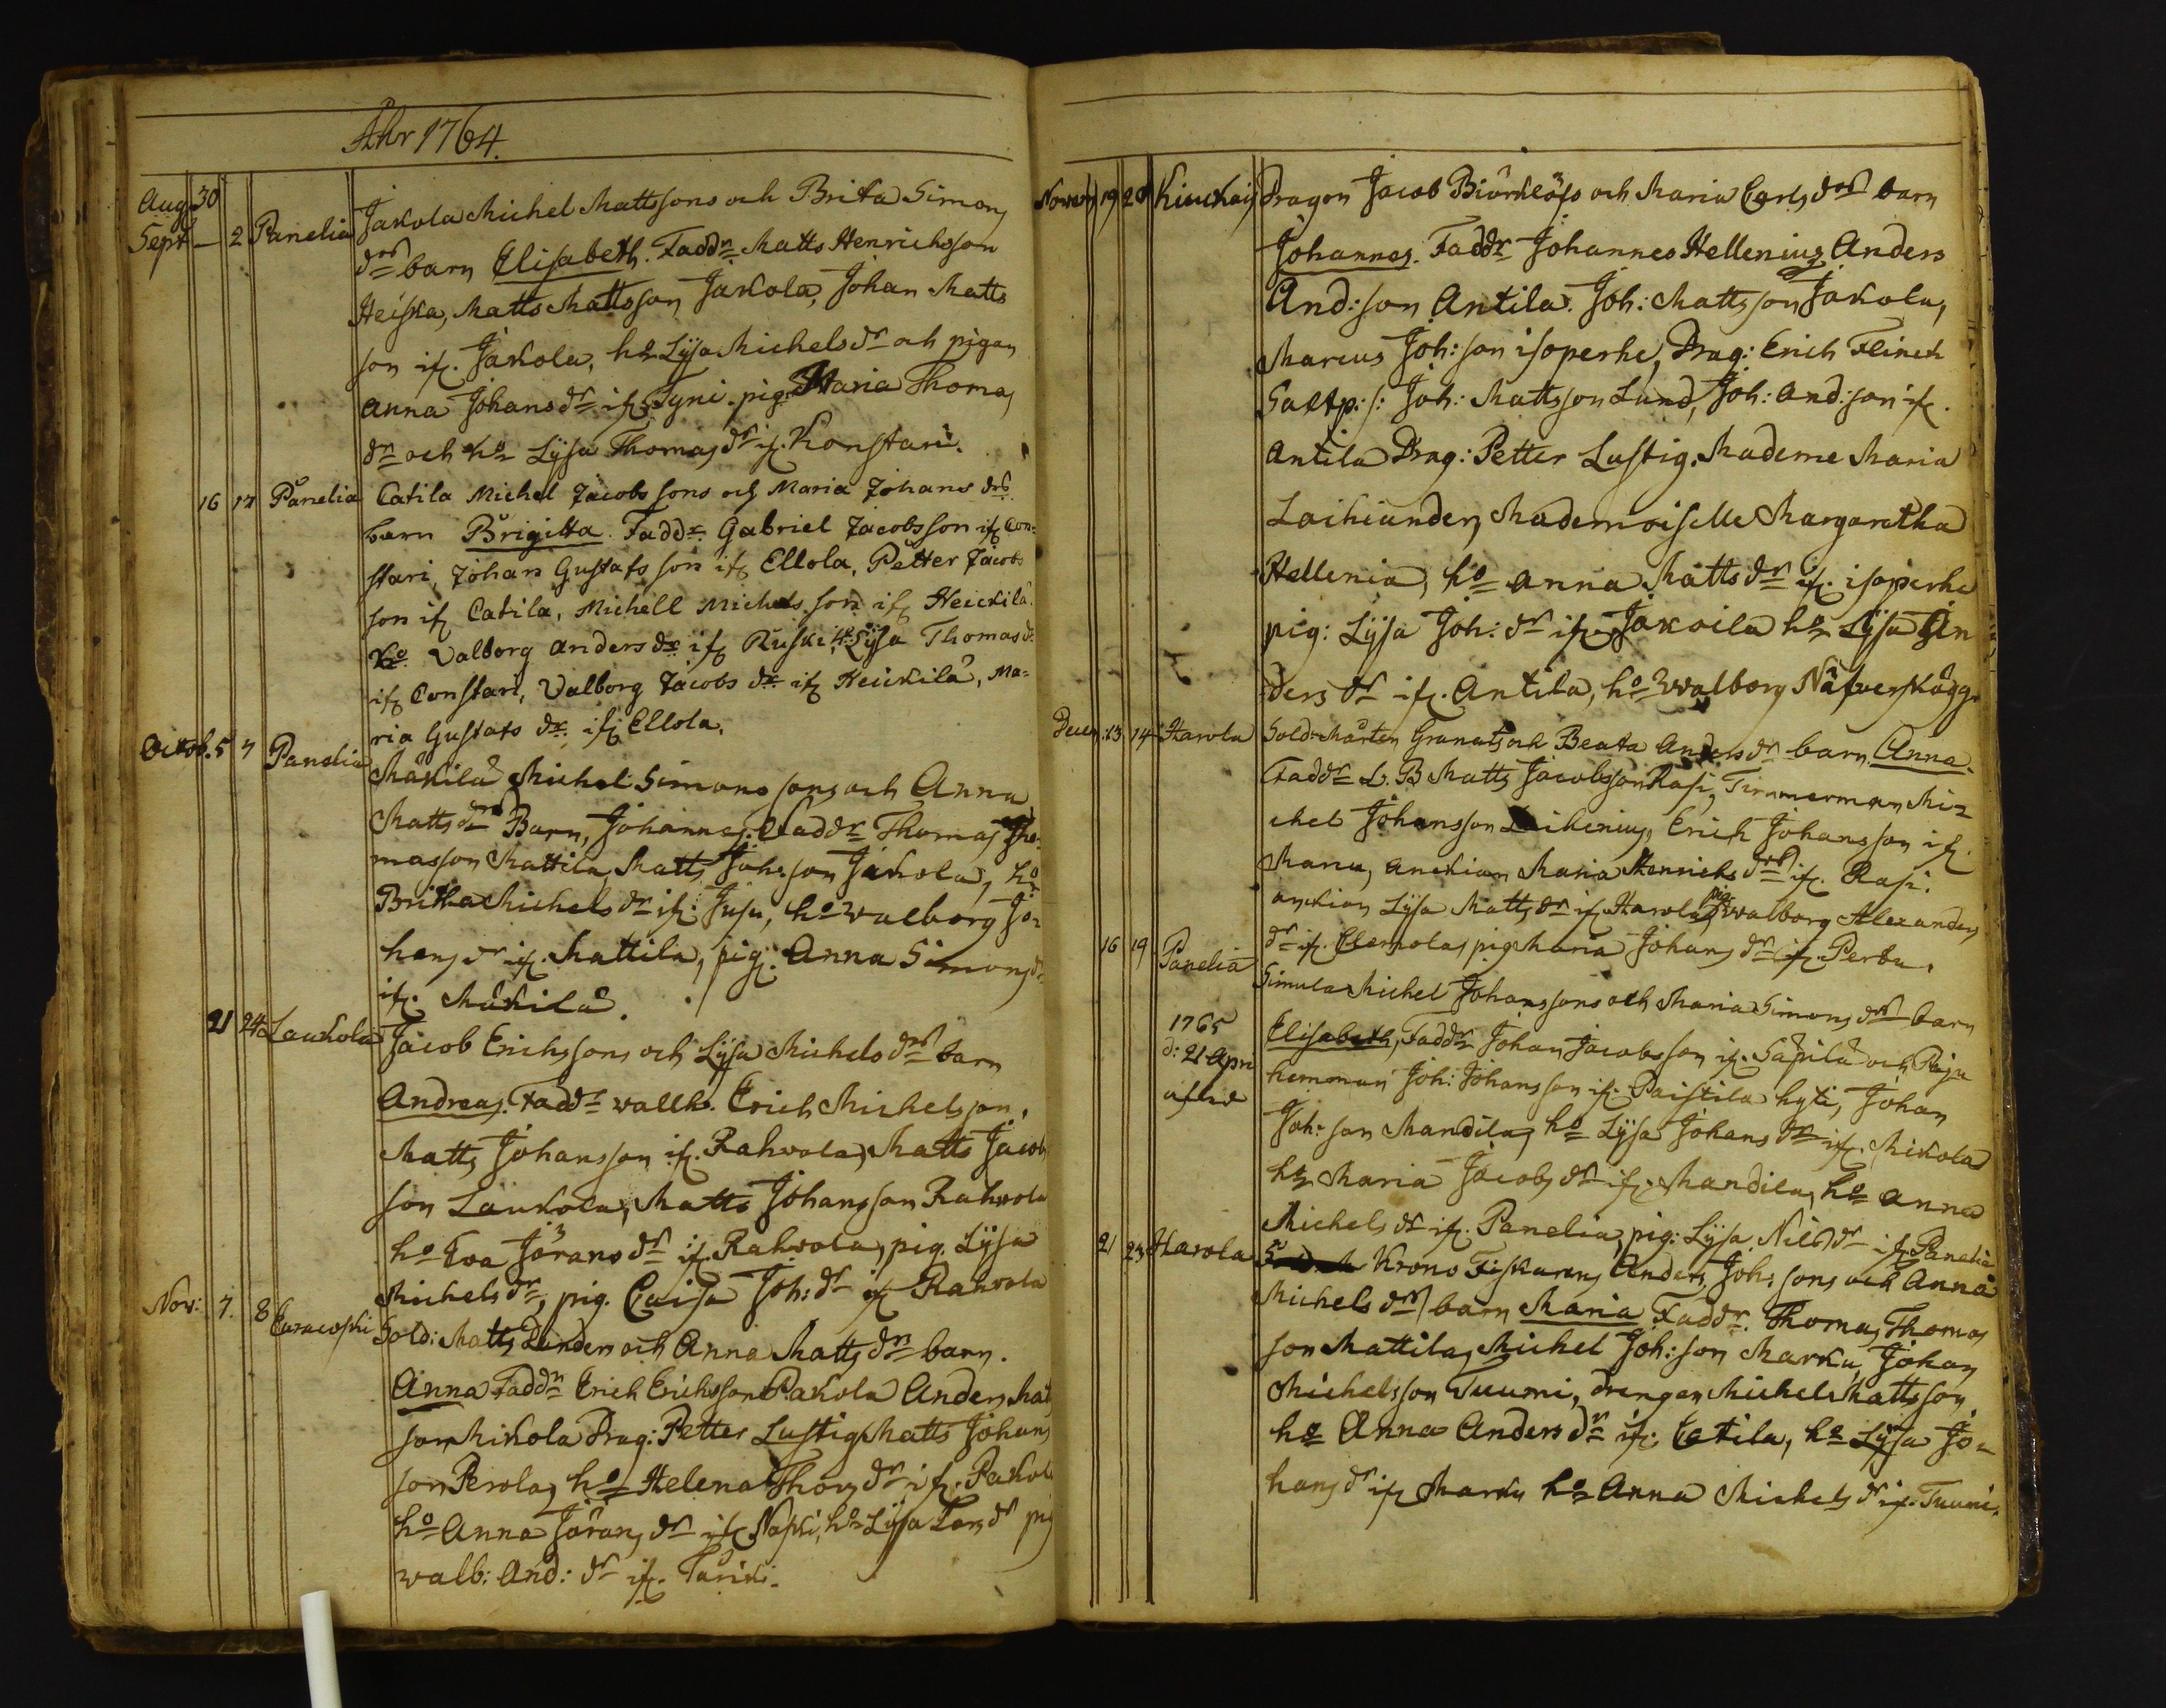 Åhr 1764.
Aug. 30
Sept – 2 Panelia Jakola Michel Mattssons och Brita Simons
drs barn Elisabeth. Faddr Matts Henrichsson
Heiska, Matts Mattsson Jakola, Johan Matts
son if. Jakola, ho Lijsa Michelsdr och pigan
Anna Johansdr if. Tyni. pig. Maria Thomas
dr och ho Lijsa Thomasdr if. Konstari.
16 17 Panelia Catila Michel Jacobssons och Maria Johans drs
barn Brigitta. Faddr. Gabriel Jacobsson if Con-
stari, Johan Gustafsson if Ellola, Petter Jacobs
son if Catila, Michell Michelsson if Heickilä.
ho. Valborg Andersdr if Ruski, H. Lijsa Thomasdr
if Constari, Valborg Jacobs dr if Heickilä, Ma-
ria Gustafs dr. if Ellola.
Octob. 5 7 Panelia Mäkilä Michel Simonssons och Anna
Mattsdrs Barn, Johannes. Faddr Thomas Tho-
masson Mattila, Matts Joh:son Jakola, ho
Britha Michelsdr if. Jusu, ho Walborg Jo-
hans dr if. Mattila, pig. Anna Simonsdr
if. Mäkilä.
21 24 Laukola Jacob Erichssons och Lijsa Michels drs barn
Andreas. Faddr wallh. Erich Michelsson,
Matts Johansson if. Rahvola, Matts Jacobs
son Laukola, Matts Johansson Rahvola
ho Eva Jörans dr if Rahvola, pig. Lijsa
Michelsdr, pig. Caisa Joh: dr if Rahvola
Nov: 7. 8 Euracoski Sold: Matts Lunders och Anna Matts drs barn.
Anna Faddr Erich Erichsson Pakola Anders Mats
son Mikola Drag: Petter Lustig Matts Johans
son Perola, ho Helena Thoms dr if. Pakola
ho Anna Jörans dr if Napki, ho Lijsa Lars dr pig
walb: And: dr if.
Novem 19 20 Kiuckais Dragon Jacob Biörklöfs och Maria Carls drs barn
Johannes. Faddr Johannes Hellenius, Anders
And:son Antila. Joh: Mattsson Jakola,
Marcus Joh:son isoperhe, Drag: Erich Flinck
Saltp: s: Joh: Mattsson Lund, Joh: And:son if.
Antila Drag: Petter Lustig. Mademe Maria
Laihiander, Mademoiselle Margaretha
Hellenia, ho Anna Matts dr if. isoperhe
pig: Lijsa Joh: dr if. Jakoila ho Lijsa An
ders dr if. Antila, ho Walborg Näfverskägg.
Decem: 13 14 Harola Sold: Mårten Granats och Beata Anders dr barn Anna.
Faddr L. B Matts Jacobsson Rasi, Timmerman Mi-
chel Johansson Laihenius, Erich Johansson if.
Manu, anckian Maria Henrichs dr if. Rasi.
anckian Lijsa Matts dr if. Harola, pig. walborg Alexanders
dr if. Clemola, pig Maria Johans dr if. Perttu.
16 19 Panelia Simula Michel Johanssons och Maria Simons drs barn
1765 d: 21 Apri aflid
Elisabeth, Faddr Johan Jacobsson if. Säpilä och Paju
hemman Joh: Johansson if. Paistila hyti, Johan
Joh:son Mandila, ho Lijsa Johans dr if. Mikola
ho Maria Jacobs dr if. Mandila, ho Anna
Michels dr if. Panelia, pig: Lijsa Nils dr if Panelia
21 23 Harola Krono Fiskarens Anders Joh:sons och Anna
Michels drs barn Maria Faddr. Thomas Thomas
son Mattila, Michel Joh:son Marku, Johan
Michelsson Tuumi, drengen Michel Mattsson.
ho Anna Anders dr if. Catila, ho Lijsa Jo-
hans dr if Marku ho Anna Michels dr if. Tuumi.